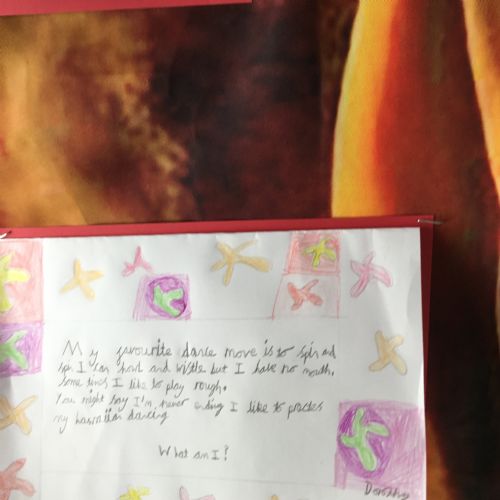 My favourite dance move is to spin and
spin I can howl and wistle but I have no mouth,
Some times I like to play rough.
You might say I'm never ending I like to practes
my hawaiian dancing
What am I?
Dorothy